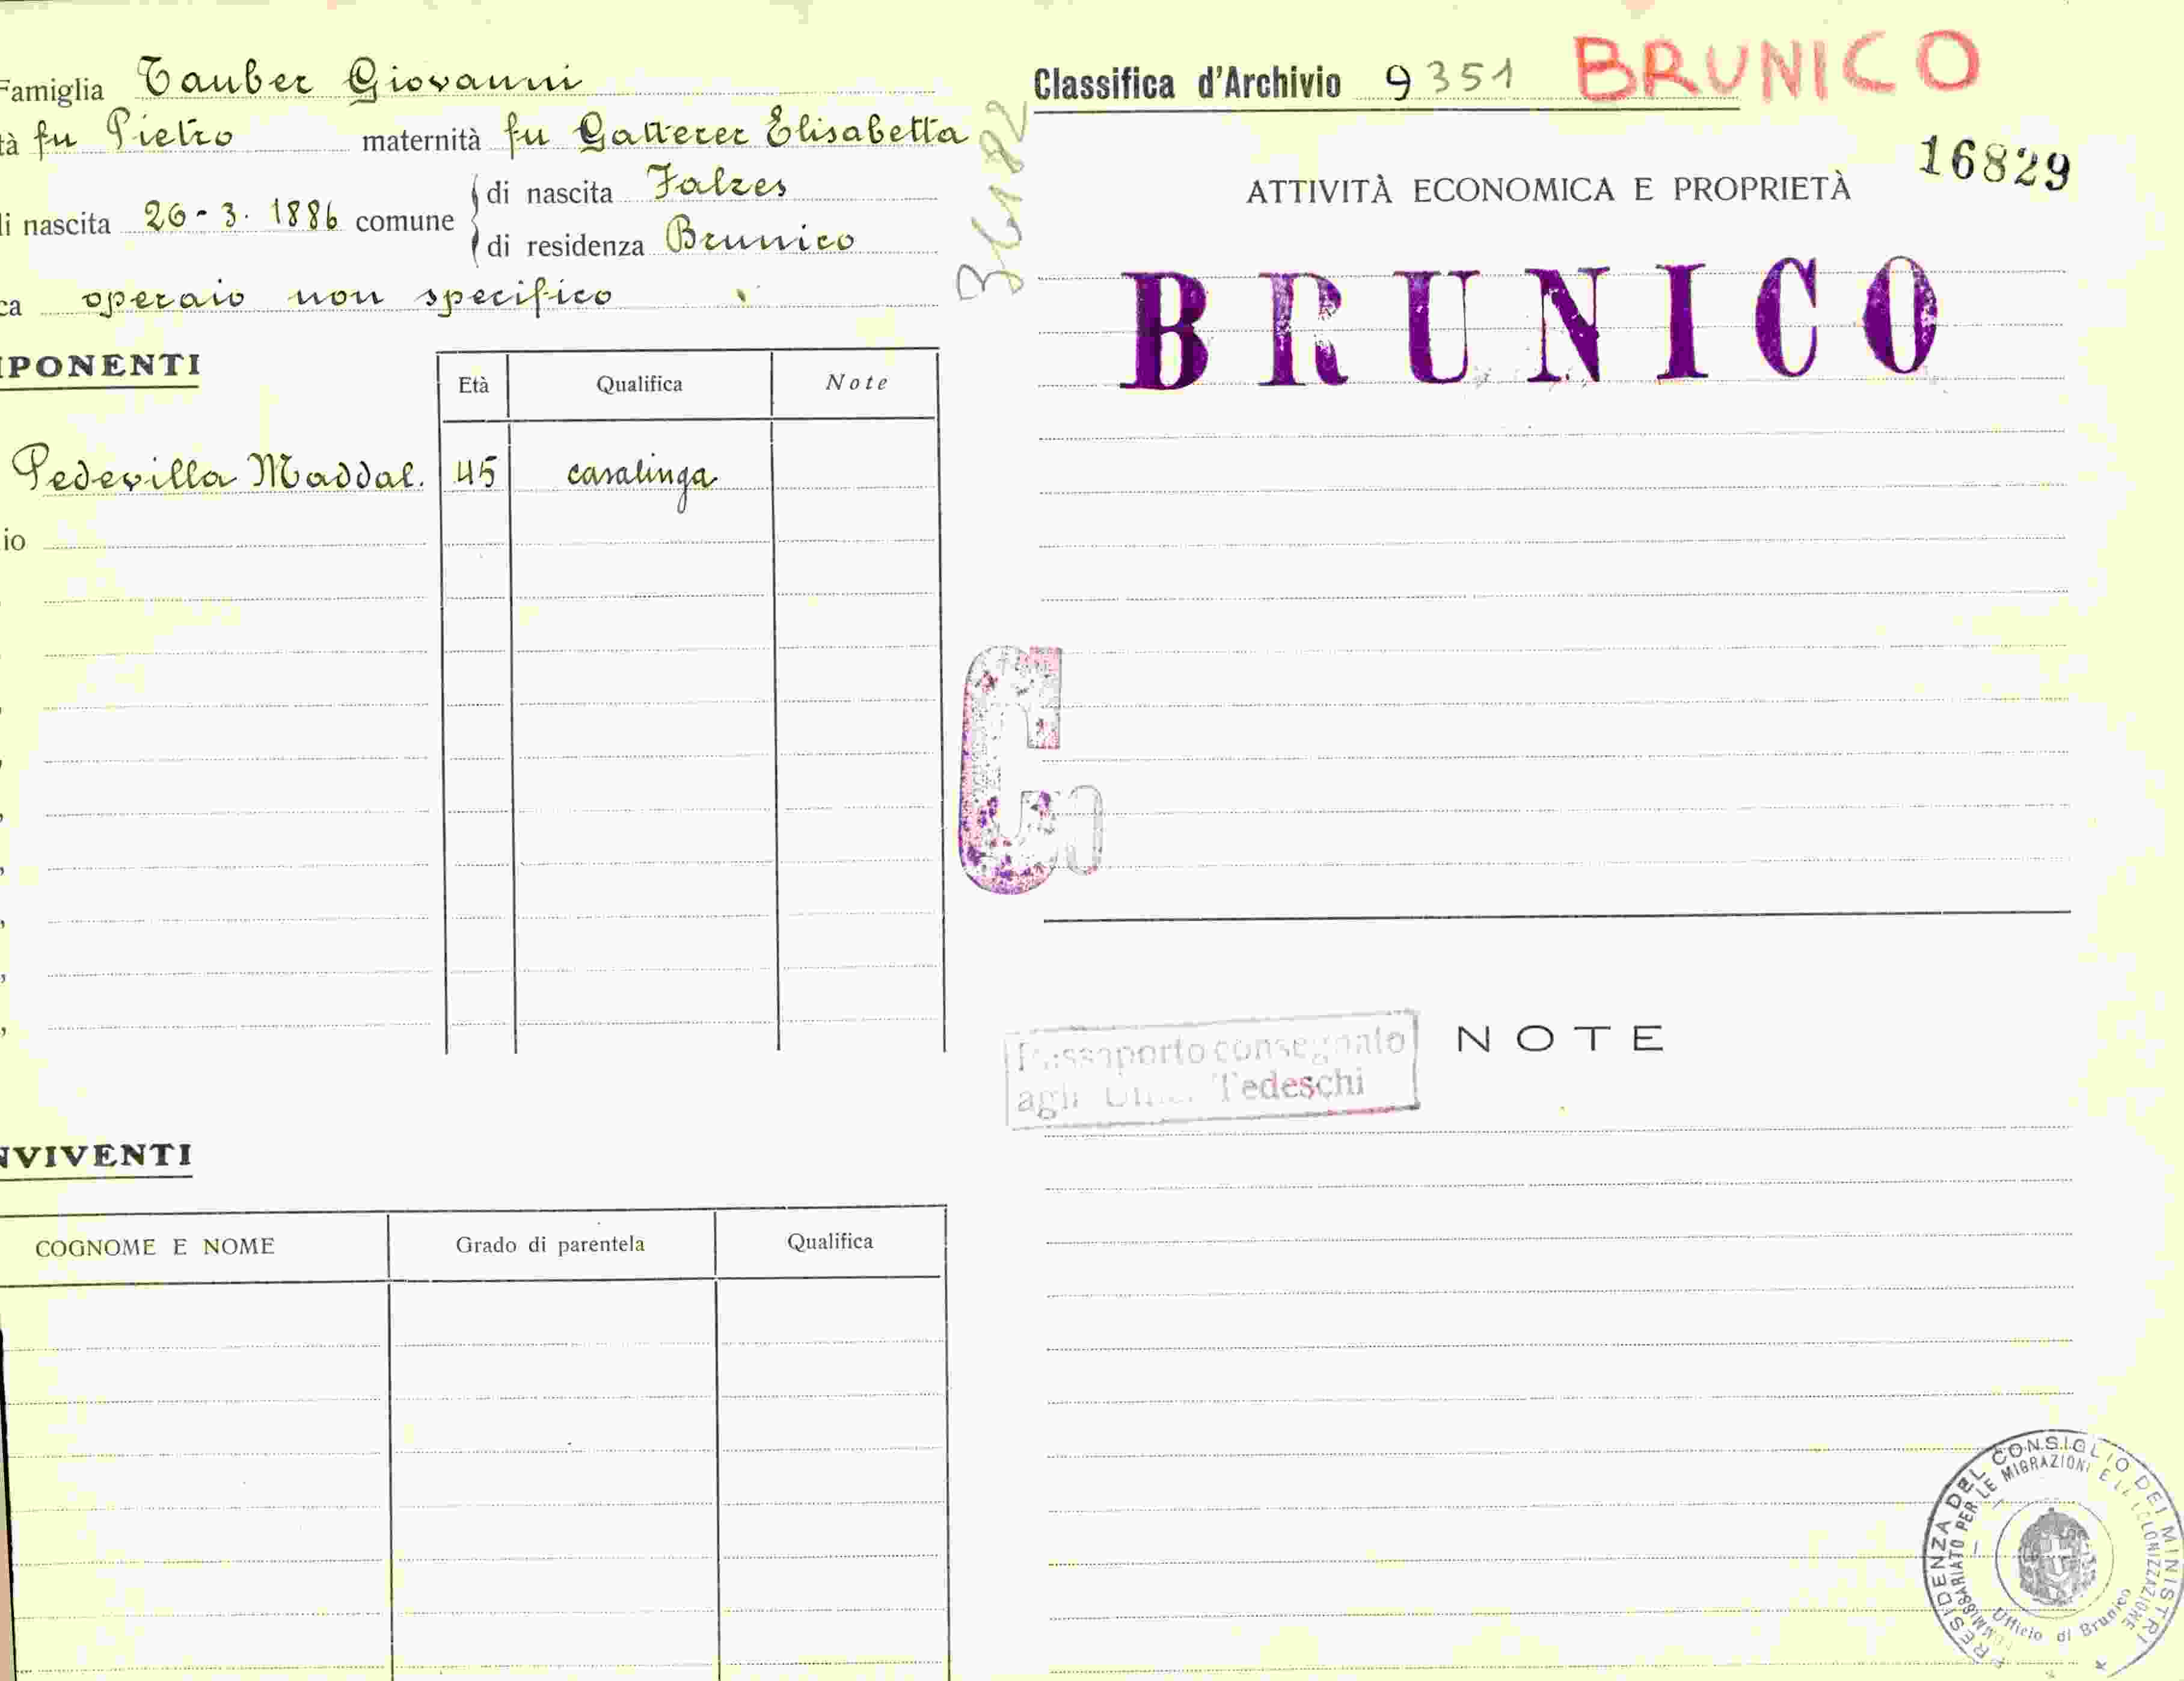 Famiglia Tauber Giovanni
tà fu Pietro maternità fu Gatterer Elisabetta
di nascita 26-3.1886 comune
di nascita Falzes
di residenza Brunico
ca operaio non specifico
PONENTI
Età Qualifica Note
Pedevilla Maddal. 45 casalinga
io
NVIVENTI
COGNOME E NOME Grado di parentela Qualifica
Classifica d'Archivio 9351 BRUNICO
16829
ATTIVITÀ ECONOMICA E PROPRIETÀ
BRUNICO
G
Passaporto consegnato
agli Tedeschi
NOTE
PRESIDENZA DEL CONSIGLIO DEI MINISTRI
COMMISSARIATO PER LE MIGRAZIONI E LA COLONIZZAZIONE
Ufficio di Brunico